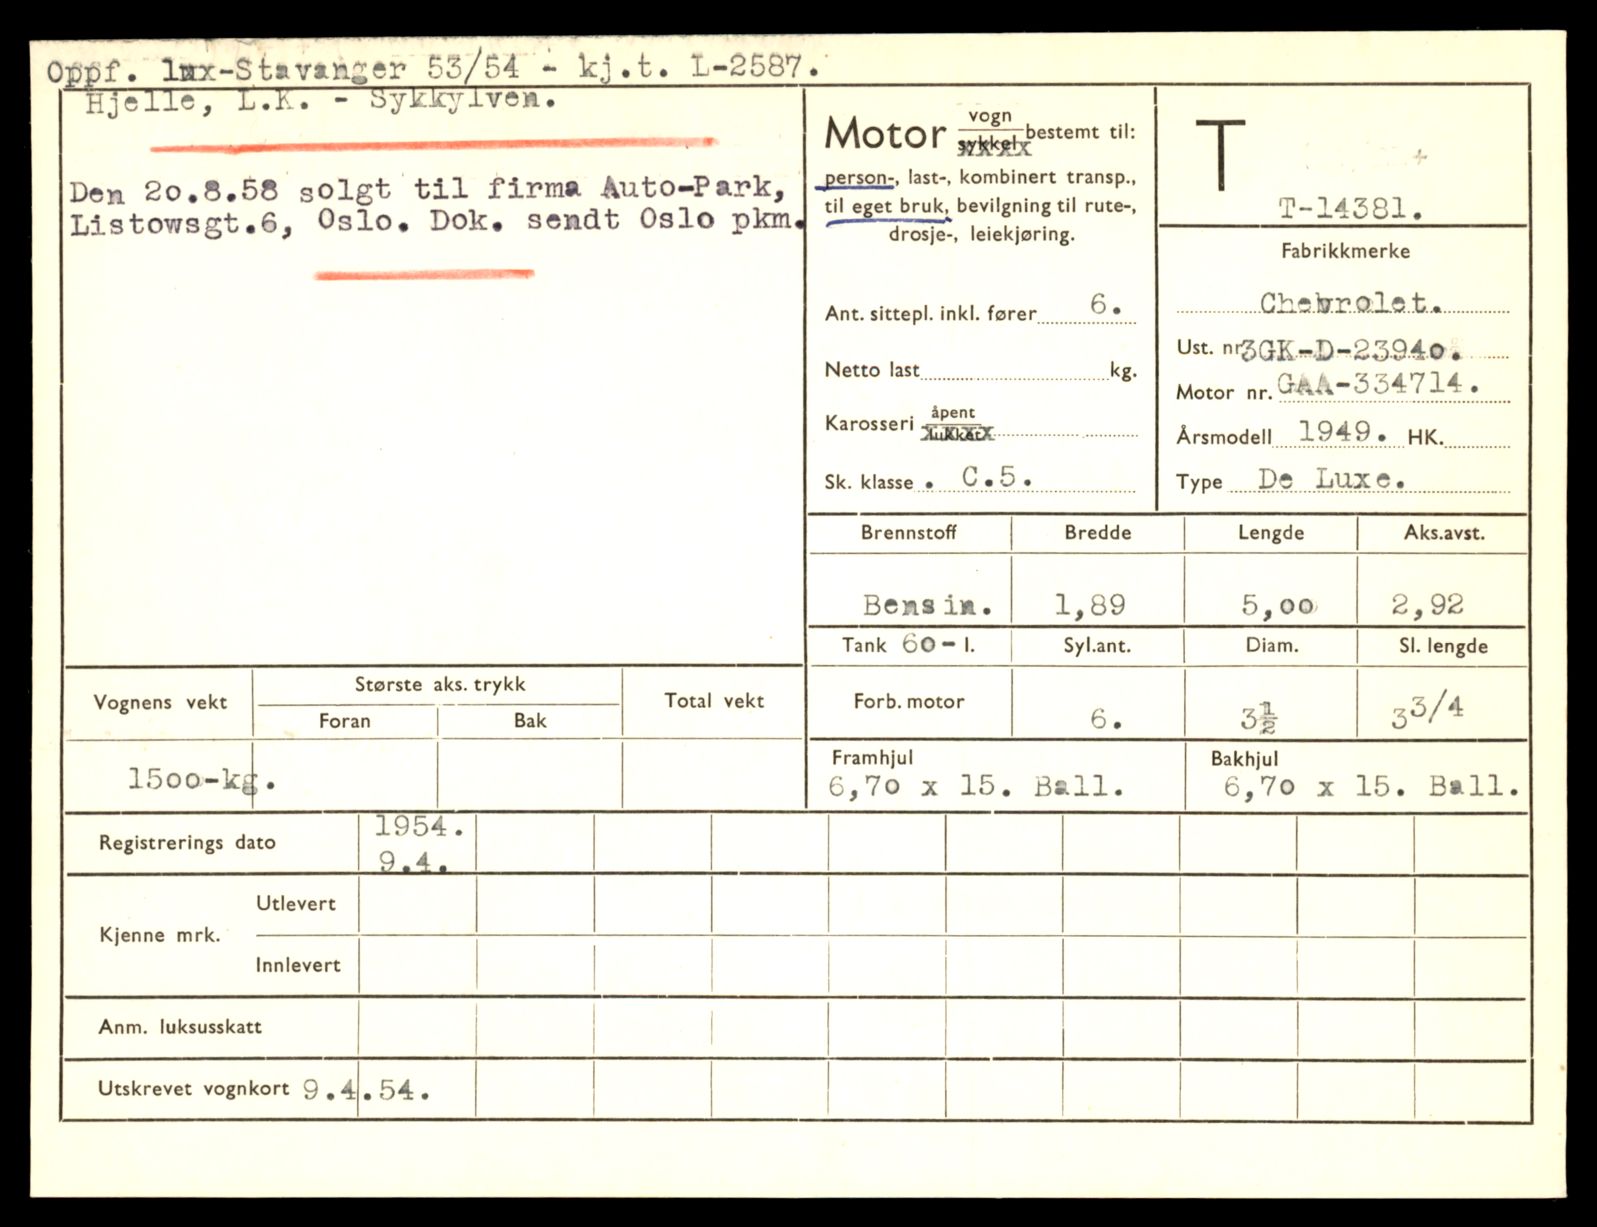 Oppf. lux-Stavanger 53/54 - kj.t. L-2587.
Hjelle, L.K. - Sykkylven.
Den 20.8.58 solgt til firma Auto-Park,
Listowsgt.6, Oslo. Dok. sendt Oslo pkm.
Motor vogn
sykkel bestemt til:
person-, last-, kombinert transp.,
til eget bruk, bevilgning til rute-,
drosje-, leiekjøring.
Ant. sittepl. inkl. fører 6.
Netto last kg.
Karosseri åpent
lukket
Sk. klasse . C.5.
T
T-14381.
Fabrikkmerke
Chevrolet.
Ust. nr. 3GK-D-23940.
Motor nr. GAA-334714.
Årsmodell 1949. HK.
Type De Luxe.
Brennstoff Bredde Lengde Aks.avst.
Bensin. 1,89 5,00 2,92
Tank 60- l. Syl.ant. Diam. Sl. lengde
Forb. motor 6. 3½ 3 3/4
Framhjul Bakhjul
6,70 x 15. Ball. 6,70 x 15. Ball.
Vognens vekt Største aks. trykk Total vekt
Foran Bak
1500-kg.
Registrerings dato 1954.
9.4.
Kjenne mrk. Utlevert
Innlevert
Anm. luksusskatt
Utskrevet vognkort 9.4.54.